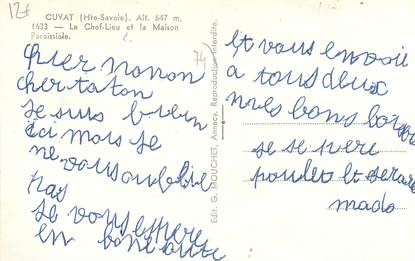 12€
CUVAT (Hte-Savoie). Alt. 647 m.
1633 — Le Chef-Lieu et la Maison
Paroissiale.
74
cher nonon
cher taton
je suis bien
ici mais je
ne vous oublie
pas
je vous espere
en bone sante
Edit. G. MOUCHET, Annecy. Reproduction interdite.
et vous envoie
a tous deux
mes bons
je se
poulet et
mado